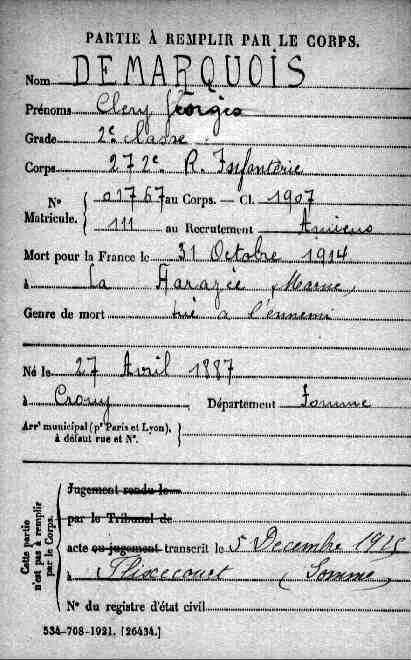 PARTIE À REMPLIR PAR LE CORPS.
Nom DEMARQUOIS
Prénoms Clery Georges
Grade 2e classe
Corps 272e R. Infanterie
N° Matricule. { 01767 au Corps. — Cl. 1907
111 au Recrutement Amiens
Mort pour la France le 31 Octobre 1914
à La Harazée (Marne)
Genre de mort tué a l'ennemi
Né le 27 Avril 1887
à Crouy Département Somme
Arrt municipal (pr Paris et Lyon), à défaut rue et N°. }
Cette partie n'est pas à remplir par le Corps. {
Jugement rendu le
par le Tribunal de
acte ou jugement transcrit le 5 Decembre 1915
à Flixecourt (Somme)
N° du registre d'état civil
534-708-1921. [26434.]